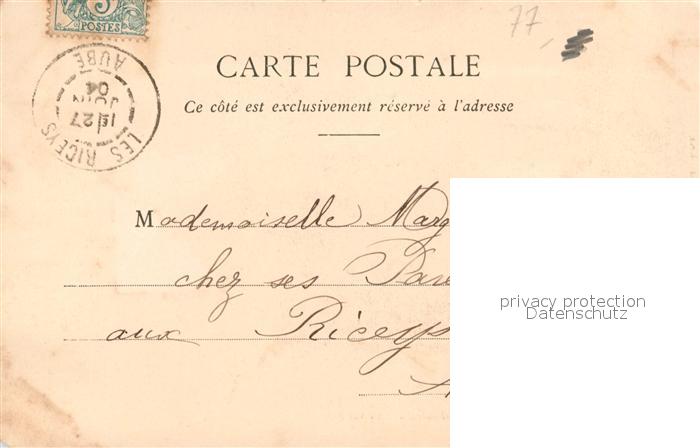 5
POSTES
77
CARTE POSTALE
Ce côté est exclusivement réservé à l'adresse
LES RICEYS
1E 27
JUIN
04
AUBE
Mademoiselle Marg
chez ses Pare
privacy protection
Datenschutz
aux Riceys
A